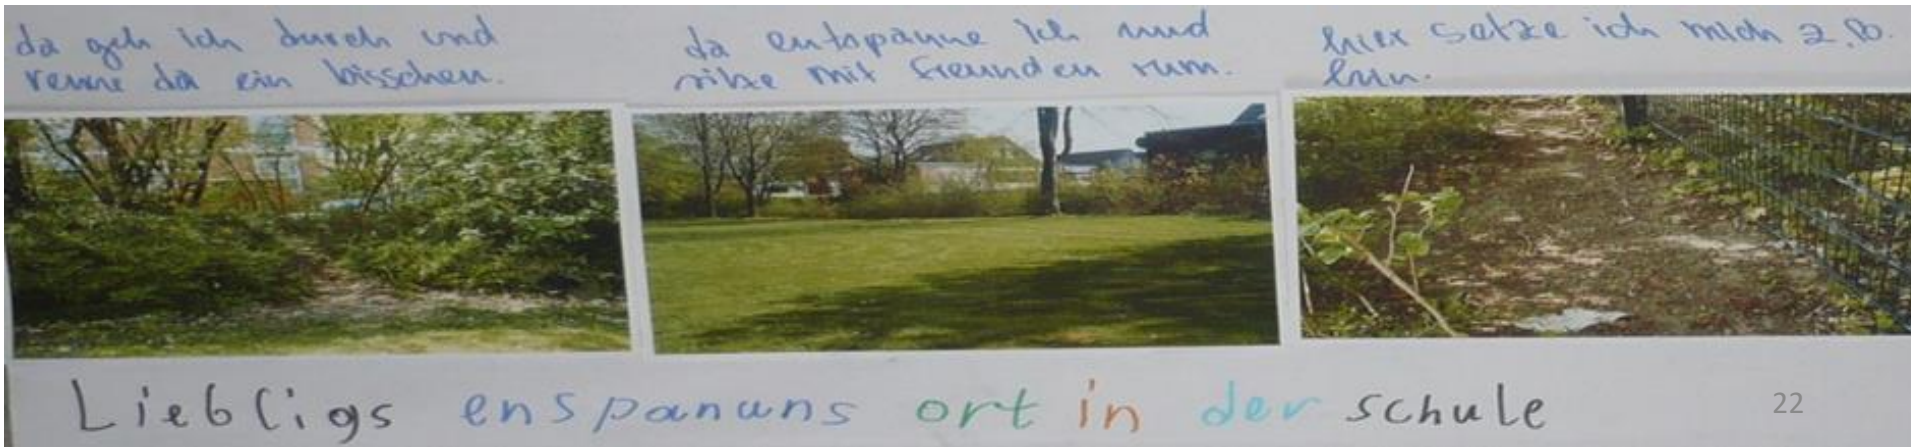 da geh ich durch und
renne da ein bisschen.
da entspanne ich und
sitze mit freunden rum.
hier setze ich mich z.B.
hin.
Liebligs enspanuns ort in der schule
22